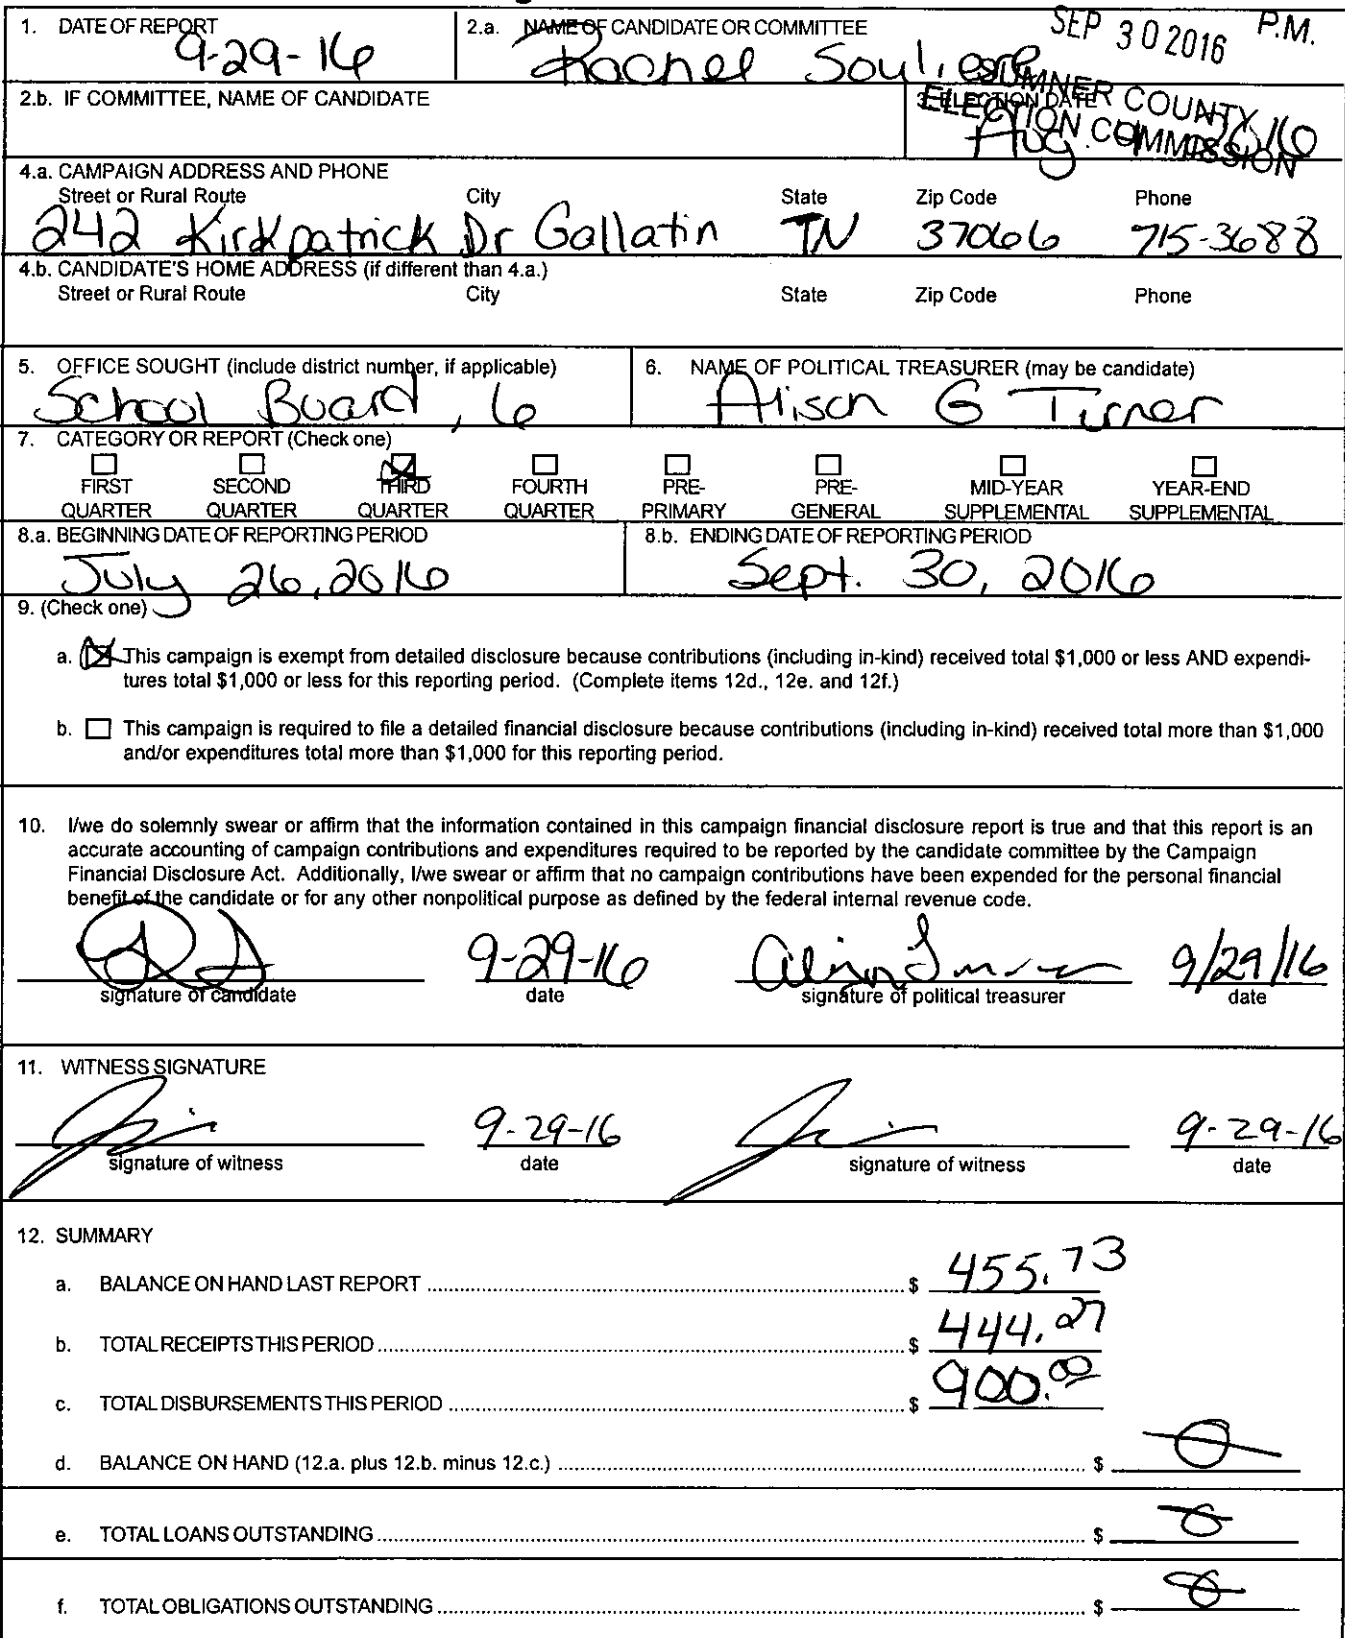 SEP 30 2016 P.M.
SUMNER COUNTY
ELECTION COMMISSION
1. DATE OF REPORT
9-29-16
2.a. NAME OF CANDIDATE OR COMMITTEE
Rachel Souliere
2.b. IF COMMITTEE, NAME OF CANDIDATE
3. ELECTION DATE
Aug
4.a. CAMPAIGN ADDRESS AND PHONE
Street or Rural Route City State Zip Code Phone
242 Kirkpatrick Dr Gallatin TN 37066 715-3688
4.b. CANDIDATE'S HOME ADDRESS (if different than 4.a.)
Street or Rural Route City State Zip Code Phone
5. OFFICE SOUGHT (include district number, if applicable)
School Board, 6
6. NAME OF POLITICAL TREASURER (may be candidate)
Alison G Turner
7. CATEGORY OR REPORT (Check one)
FIRST QUARTER
SECOND QUARTER
THIRD QUARTER
FOURTH QUARTER
PRE-PRIMARY
PRE-GENERAL
MID-YEAR SUPPLEMENTAL
YEAR-END SUPPLEMENTAL
8.a. BEGINNING DATE OF REPORTING PERIOD
July 26, 2016
8.b. ENDING DATE OF REPORTING PERIOD
Sept. 30, 2016
9. (Check one)
a. This campaign is exempt from detailed disclosure because contributions (including in-kind) received total $1,000 or less AND expendi-
tures total $1,000 or less for this reporting period. (Complete items 12d., 12e. and 12f.)
b. This campaign is required to file a detailed financial disclosure because contributions (including in-kind) received total more than $1,000
and/or expenditures total more than $1,000 for this reporting period.
10. I/we do solemnly swear or affirm that the information contained in this campaign financial disclosure report is true and that this report is an
accurate accounting of campaign contributions and expenditures required to be reported by the candidate committee by the Campaign
Financial Disclosure Act. Additionally, I/we swear or affirm that no campaign contributions have been expended for the personal financial
benefit of the candidate or for any other nonpolitical purpose as defined by the federal internal revenue code.
9-29-16 Alison Turner 9/29/16
signature of candidate date signature of political treasurer date
11. WITNESS SIGNATURE
9-29-16 9-29-16
signature of witness date signature of witness date
12. SUMMARY
a. BALANCE ON HAND LAST REPORT $ 455.73
b. TOTAL RECEIPTS THIS PERIOD $ 444.27
c. TOTAL DISBURSEMENTS THIS PERIOD $ 900.00
d. BALANCE ON HAND (12.a. plus 12.b. minus 12.c.) $ 0
e. TOTAL LOANS OUTSTANDING $ 0
f. TOTAL OBLIGATIONS OUTSTANDING $ 0